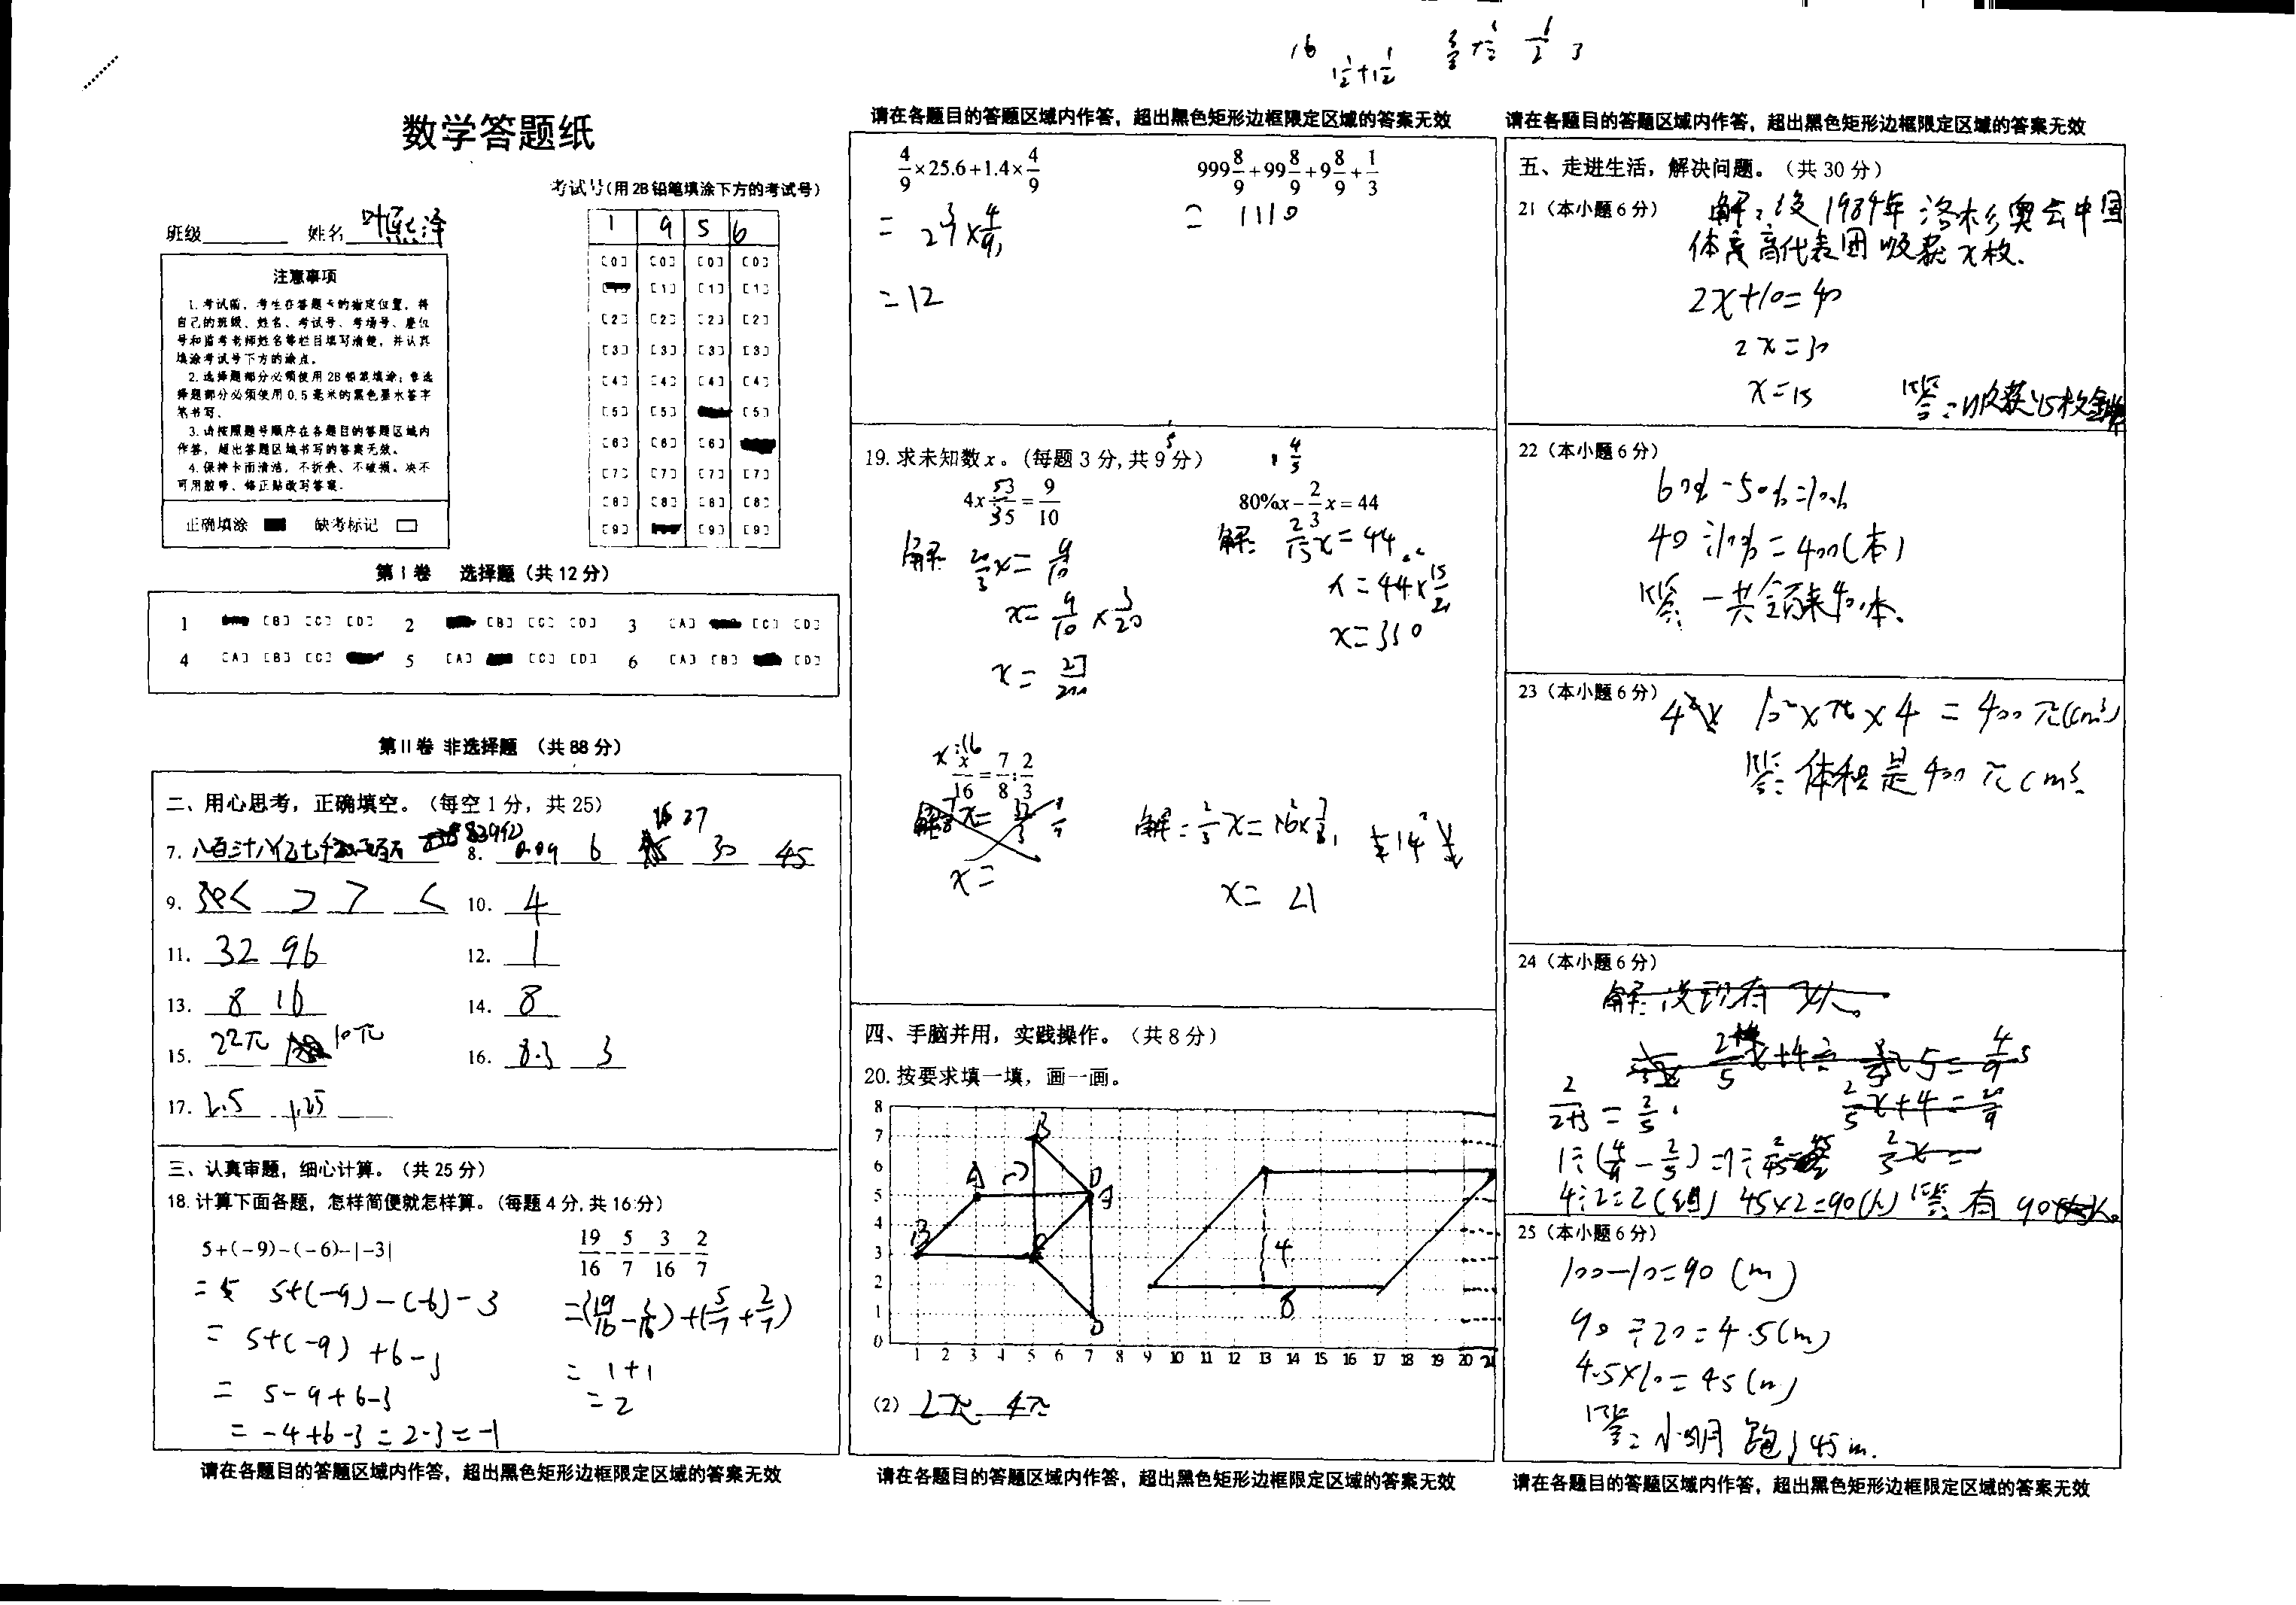 数学答题纸
考试号(用2B铅笔填涂下方的考试号)
班级 姓名 叶熙泽
1 9 5 6
注意事项
1.考试前,考生在答题卡的指定位置,将
自己的班级、姓名、考试号、考场号、座位
号和监考老师姓名等栏目填写清楚,并认真
填涂考试号下方的涂点。
2.选择题部分必须使用2B铅笔填涂;非选
择题部分必须使用0.5毫米的黑色墨水签字
笔书写。
3.请按照题号顺序在各题目的答题区域内
作答,超出答题区域书写的答案无效。
4.保持卡面清洁,不折叠、不破损。决不
可用胶带、修正贴改写答案.
正确填涂 缺考标记
[0] [0] [0] [0]
[1] [1] [1]
[2] [2] [2] [2]
[3] [3] [3] [3]
[4] [4] [4] [4]
[5] [5] [5]
[6] [6] [6]
[7] [7] [7] [7]
[8] [8] [8] [8]
[9] [9] [9]
第Ⅰ卷 选择题(共12分)
1 [B] [C] [D] 2 [B] [C] [D] 3 [A] [C] [D]
4 [A] [B] [C] 5 [A] [C] [D] 6 [A] [B] [D]
第Ⅱ卷 非选择题 (共88分)
二、用心思考,正确填空。(每空1分,共25)
7. 8. 0.09 6 27 30 45
9. < > > < 10. 4
11. 32 96 12. 1
13. 8 16 14. 8
15. 22π 10π 16. 8.3 3
17. 2.5 1.25
三、认真审题,细心计算。(共25分)
18.计算下面各题,怎样简便就怎样算。(每题4分,共16分)
5+(-9)-(-6)-|-3|
= 5+(-9)-(-6)-3
= 5+(-9)+6-3
= 5-9+6-3
= -4+6-3=2-3=-1
19/16-5/7-3/16-2/7
=(19/16-3/16)+(5/7+2/7)
= 1+1
= 2
请在各题目的答题区域内作答,超出黑色矩形边框限定区域的答案无效
16 1 1/2+1 1/2 3
请在各题目的答题区域内作答,超出黑色矩形边框限定区域的答案无效
4/9×25.6+1.4×4/9
= 27×4/9
=12
999 8/9+99 8/9+9 8/9+1/3
= 1110
19.求未知数x。(每题3分,共9分)
解: 20/3x=9/10
x=9/10×3/20
x=27/200
80%x-2/3x=44
解: 2/15x=44
x=44×15/2
x=330
x/16=7/8:2/3
x=
解:2/3x=16×7/8
x=21
四、手脑并用,实践操作。(共8分)
20.按要求填一填,画一画。
8
7
6
5
4
3
2
1
0
1 2 3 4 5 6 7 8 9 10 11 12 13 14 15 16 17 18 19 20 21
A B D 4 8
(2) 2π 4π
请在各题目的答题区域内作答,超出黑色矩形边框限定区域的答案无效
请在各题目的答题区域内作答,超出黑色矩形边框限定区域的答案无效
五、走进生活,解决问题。(共30分)
21(本小题6分) 解:设1984年洛杉奥会中国
体育代表团收获x枚.
2x+10=40
2x=30
x=15
答:收获15枚金牌
22(本小题6分)
60%-50%=10%
40÷10%=400(本)
答:一共400本.
23(本小题6分)
10²×π×4=400π(cm³)
答:体积是400πcm³.
24(本小题6分)
2/(2+3)=2/5
1÷(4/9-2/5)=1÷2/45
4÷2=2(组) 45×2=90(人) 答:有90人。
25(本小题6分)
100-10=90(m)
90÷20=4.5(m)
4.5×10=45(m)
答:小明跑了45m.
请在各题目的答题区域内作答,超出黑色矩形边框限定区域的答案无效